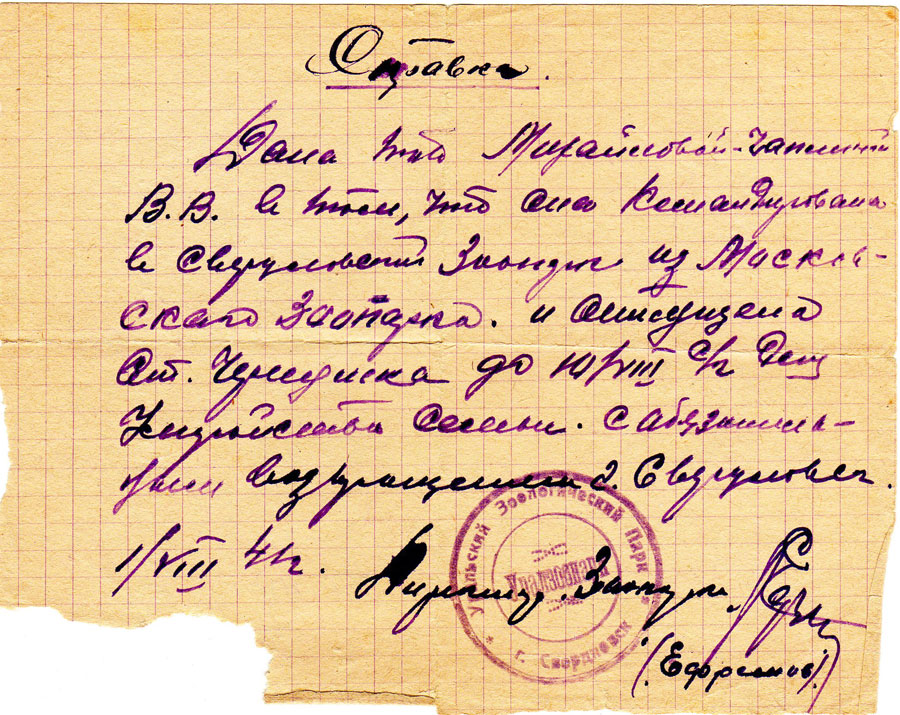 Справка.
Дана т. Михайловой-
В.В. в том, что она командирована
в Свердловский Зоопарк из Москов-
ского Зоопарка. и отпущена
ст. до 10/VIII с/г для
устройства семьи. с обязатель-
ным возвращением г. Свердловск.
1/VIII 41г. Директор. Зоопарка
(Ефремов)
Уральский Зоологический Парк
Уралзоопарк
* г. Свердловск *